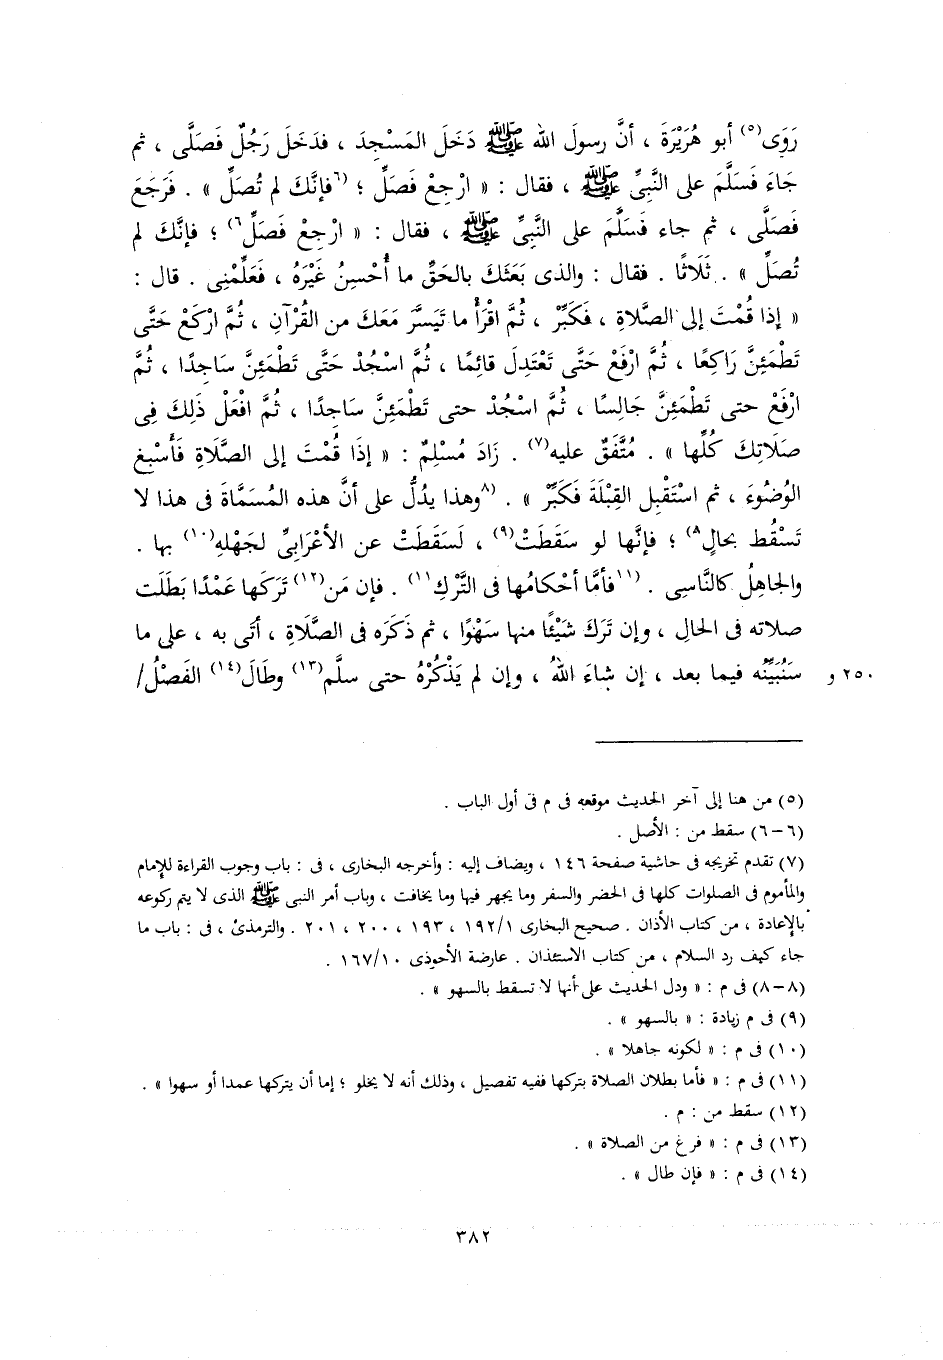 رَوَى(٥) أبو هُرَيْرَةَ ، أنَّ رسولَ الله ﷺ دَخَلَ المَسْجِدَ ، فدَخَلَ رَجُلٌ فَصَلَّى ، ثم
جَاءَ فَسَلَّمَ على النَّبِىِّ ﷺ ، فقال : « ارْجِعْ فَصَلِّ ؛ (٦فإنَّكَ لم تُصَلِّ » . فَرَجَعَ
فَصَلَّى ، ثم جاء فَسَلَّمَ على النَّبِىِّ ﷺ ، فقال : « ارْجِعْ فَصَلِّ٦) ؛ فإنَّكَ لم
تُصَلِّ » . ثَلَاثًا . فقال : والذى بَعَثَكَ بالحَقِّ ما أُحْسِنُ غَيْرَهُ ، فَعَلِّمْنِى . قال :
« إذا قُمْتَ إلى الصَّلاةِ ، فَكَبِّرْ ، ثُمَّ اقْرَأْ ما تَيَسَّرَ مَعَكَ من القُرْآنِ ، ثُمَّ ارْكَعْ حَتَّى
تَطْمَئِنَّ رَاكِعًا ، ثُمَّ ارْفَعْ حَتَّى تَعْتَدِلَ قائِمًا ، ثُمَّ اسْجُدْ حَتَّى تَطْمَئِنَّ سَاجِدًا ، ثُمَّ
ارْفَعْ حتى تَطْمَئِنَّ جَالِسًا ، ثُمَّ اسْجُدْ حتى تَطْمَئِنَّ سَاجِدًا ، ثُمَّ افْعَلْ ذَلِكَ فِى
صَلَاتِكَ كُلِّها » . مُتَّفَقٌ عليه(٧) . زَادَ مُسْلِمٌ : « إذَا قُمْتَ إلى الصَّلَاةِ فَأَسْبِغِ
الوُضُوءَ ، ثم اسْتَقْبِلِ القِبْلَةَ فَكَبِّرْ » . (٨وهذا يدُلُّ على أنَّ هذه المُسَمَّاةَ فى هذا لا
تَسْقُط بحالٍ٨) ؛ فإنَّها لو سَقَطَتْ(٩) ، لَسَقَطَتْ عن الأعْرَابِىِّ لجَهْلِهِ(١٠) بها .
والجاهِلُ كالنَّاسِى . (١١فأمَّا أحْكامُها فى التَّرْكِ١١) . فإن مَن(١٢) تَرَكَها عَمْدًا بَطَلَت
صلاته فى الحالِ ، وإن تَرَكَ شَيْئًا منها سَهْوًا ، ثم ذَكَرَه فى الصَّلَاةِ ، أتَى به ، على ما
سَنُبَيِّنُه فيما بعد ، إن شاءَ اللهُ ، وإن لم يَذْكُرْهُ حتى سلَّم(١٣) وطَالَ(١٤) الفَصْلُ/ ٢٥٠ و
(٥) من هنا إلى آخر الحديث موقعه فى م فى أول الباب .
(٦-٦) سقط من : الأصل .
(٧) تقدم تخريجه فى حاشية صفحة ١٤٦ ، ويضاف إليه : وأخرجه البخارى ، فى : باب وجوب القراءة للإمام
والمأموم فى الصلوات كلها فى الحضر والسفر وما يجهر فيها وما يخافت ، وباب أمر النبى ﷺ الذى لا يتم ركوعه
بالإعادة ، من كتاب الأذان . صحيح البخارى ١/ ١٩٢ ، ١٩٣ ، ٢٠٠ ، ٢٠١ . والترمذىّ ، فى : باب ما
جاء كيف رد السلام ، من كتاب الاستئذان . عارضة الأحوذى ١٠/ ١٦٧ .
(٨-٨) فى م : « ودل الحديث على أنها لا تسقط بالسهو » .
(٩) فى م زيادة : « بالسهو » .
(١٠) فى م : « لكونه جاهلا » .
(١١) فى م : « فأما بطلان الصلاة بتركها ففيه تفصيل ، وذلك أنه لا يخلو ؛ إما أن يتركها عمدا أو سهوا » .
(١٢) سقط من : م .
(١٣) فى م : « فرغ من الصلاة » .
(١٤) فى م : « فإن طال » .
٣٨٢